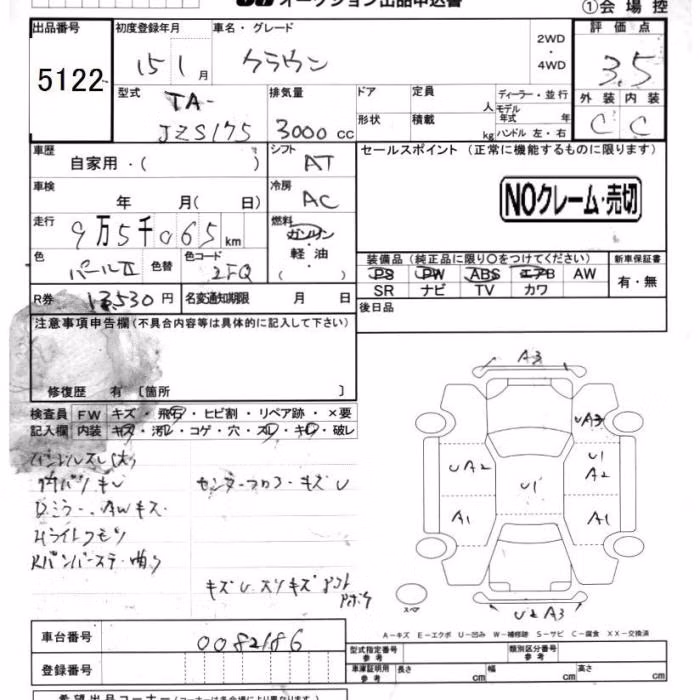 オークション出品申込書
①会場控
出品番号
5122
初度登録年月
15 1 月
車名・グレード
クラウン
2WD
・
4WD
評価点
3.5
型式
TA-
JZS175
排気量
3000 cc
ドア
形状
定員
人
積載
kg
ディーラー・並行
モデル年式 年
ハンドル 左・右
外装 内装
C C
車歴
自家用・( )
シフト
AT
車検
年 月( 日)
冷房
AC
走行
9万5千065 km
燃料
ガソリン
・
軽油
( )
色
パールII
色替
色コード
2FQ
R券
13,530円
名変通知期限 月 日
セールスポイント (正常に機能するものに限ります)
NOクレーム・売切
装備品 (純正品に限り〇をつけてください)
PS PW ABS エアB AW
SR ナビ TV カワ
新車保証書
有・無
後日品
注意事項申告欄 (不具合内容等は具体的に記入して下さい)
修復歴 有 〔箇所 〕
検査員 FW キズ・飛石・ヒビ割・リペア跡・×要
記入欄 内装 キズ・汚レ・コゲ・穴・スレ・キレ・破レ
ハンドルスレ(大)
内バリキレ
Dミラー、AWキズ
Hライトクモリ
Rバンパーステー曲り
センターフロアーキズU
キズU スリキズ
A3
UA3
UA2
U1
U1
A2
A1
A1
U2A3
スペア
A－キズ E－エクボ U－凹み W－補修跡 S－サビ C－腐食 XX－交換済
車台番号
0082186
登録番号
型式指定番号
参考
類別区分番号
参考
車庫証明用
参考
長さ cm
幅 cm
高さ cm
希望出品コーナー (コーナーは会場により異なります)